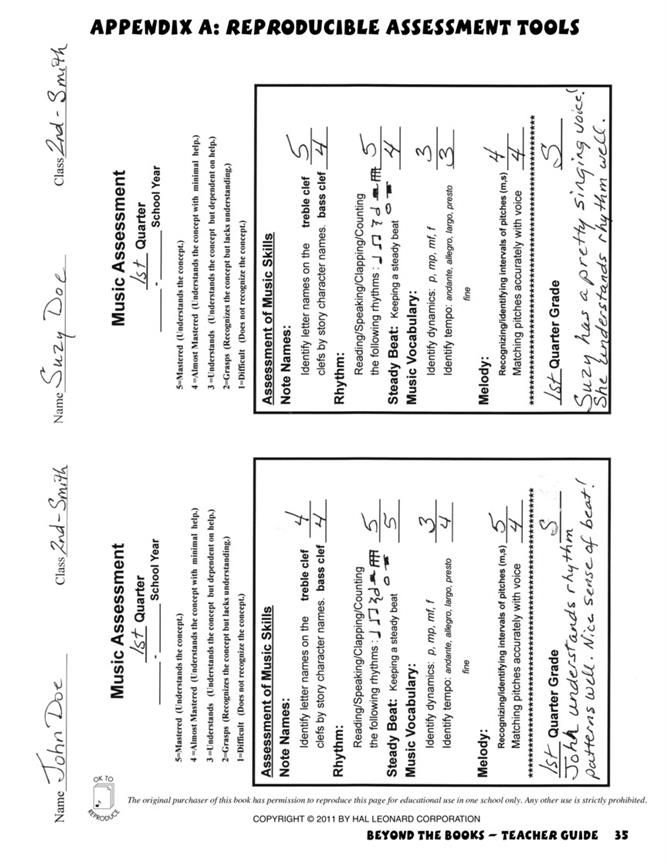 APPENDIX A: REPRODUCIBLE ASSESSMENT TOOLS
Name John Doe Class 2nd-Smith
Music Assessment
1st Quarter
- School Year
5=Mastered (Understands the concept.)
4 =Almost Mastered (Understands the concept with minimal help.)
3 =Understands (Understands the concept but dependent on help.)
2=Grasps (Recognizes the concept but lacks understanding.)
1=Difficult (Does not recognize the concept.)
Assessment of Music Skills
Note Names:
Identify letter names on the treble clef 4
clefs by story character names. bass clef 4
Rhythm:
Reading/Speaking/Clapping/Counting
the following rhythms : 5
Steady Beat: Keeping a steady beat 5
Music Vocabulary:
Identify dynamics: p, mp, mf, f 3
Identify tempo: andante, allegro, largo, presto 4
fine
Melody:
Recognizing/identifying intervals of pitches (m,s) 5
Matching pitches accurately with voice 4
1st Quarter Grade S
John understands rhythm
patterns well. Nice sense of beat!
Name Suzy Doe Class 2nd-Smith
Music Assessment
1st Quarter
- School Year
5=Mastered (Understands the concept.)
4 =Almost Mastered (Understands the concept with minimal help.)
3 =Understands (Understands the concept but dependent on help.)
2=Grasps (Recognizes the concept but lacks understanding.)
1=Difficult (Does not recognize the concept.)
Assessment of Music Skills
Note Names:
Identify letter names on the treble clef 5
clefs by story character names. bass clef 4
Rhythm:
Reading/Speaking/Clapping/Counting
the following rhythms : 5
Steady Beat: Keeping a steady beat 4
Music Vocabulary:
Identify dynamics: p, mp, mf, f 3
Identify tempo: andante, allegro, largo, presto 3
fine
Melody:
Recognizing/identifying intervals of pitches (m,s) 4
Matching pitches accurately with voice 4
1st Quarter Grade S
Suzy has a pretty singing voice!
She understands rhythm well.
OK TO
REPRODUCE
The original purchaser of this book has permission to reproduce this page for educational use in one school only. Any other use is strictly prohibited.
COPYRIGHT © 2011 BY HAL LEONARD CORPORATION
BEYOND THE BOOKS – TEACHER GUIDE 35